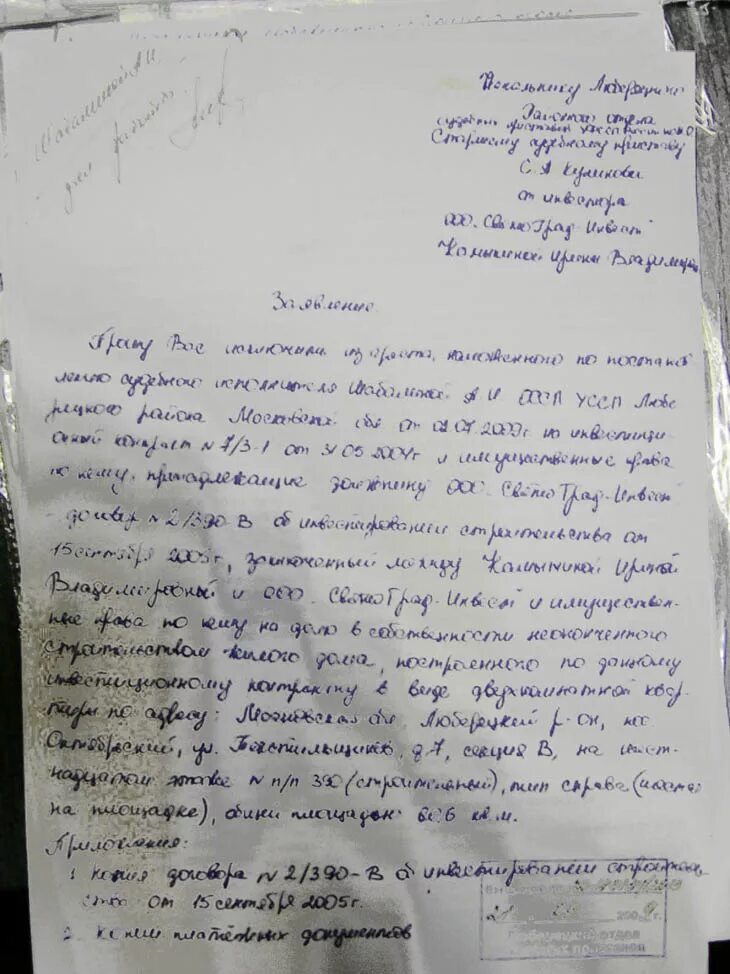 Шабалиной А.И.
для работы
Начальнику Люберецкого
Районного отдела
судебных приставов
Старшему судебному приставу
С.А Куликову
от инвестора
ООО. СветоГрад-Инвест
Камышиной Ирины Владимиров
Заявление.
Прошу Вас исключить из ареста, наложенного по постанов
лению судебного исполнителя Шабалиной А.И ОСП УССП Любе
рецкого района Московской обл от 02.07.2009г на инвестици
онный контракт N 7/3-1 от 31 05 2004г и имущественные права
по нему, принадлежащие должнику ООО. СветоГрад-Инвест
- договор N 2/390-В об инвестировании строительства от
15 сентября 2005г, заключенный между Камышиной Ириной
Владимировной и ООО. СветоГрад-Инвест и имуществен-
ные права по нему на долю в собственности неоконченного
строительством жилого дома, построенного по данному
инвестиционному контракту в виде двухкомнатной квар
тиры по адресу: Московская обл Люберецкий р-он, пос
Октябрьский, ул. Текстильщиков, д.7, секция В, на шест-
надцатом этаже N п/п 390 (строительный), тип справа (
на площадке), общей площадью 60.6 кв.м.
Приложения:
1 Копия договора N 2/390-В об инвестировании строитель
ства от 15 сентября 2005г.
2. Копии платёжных документов
21 200 г.
Люберецкий отдел
судебных приставов